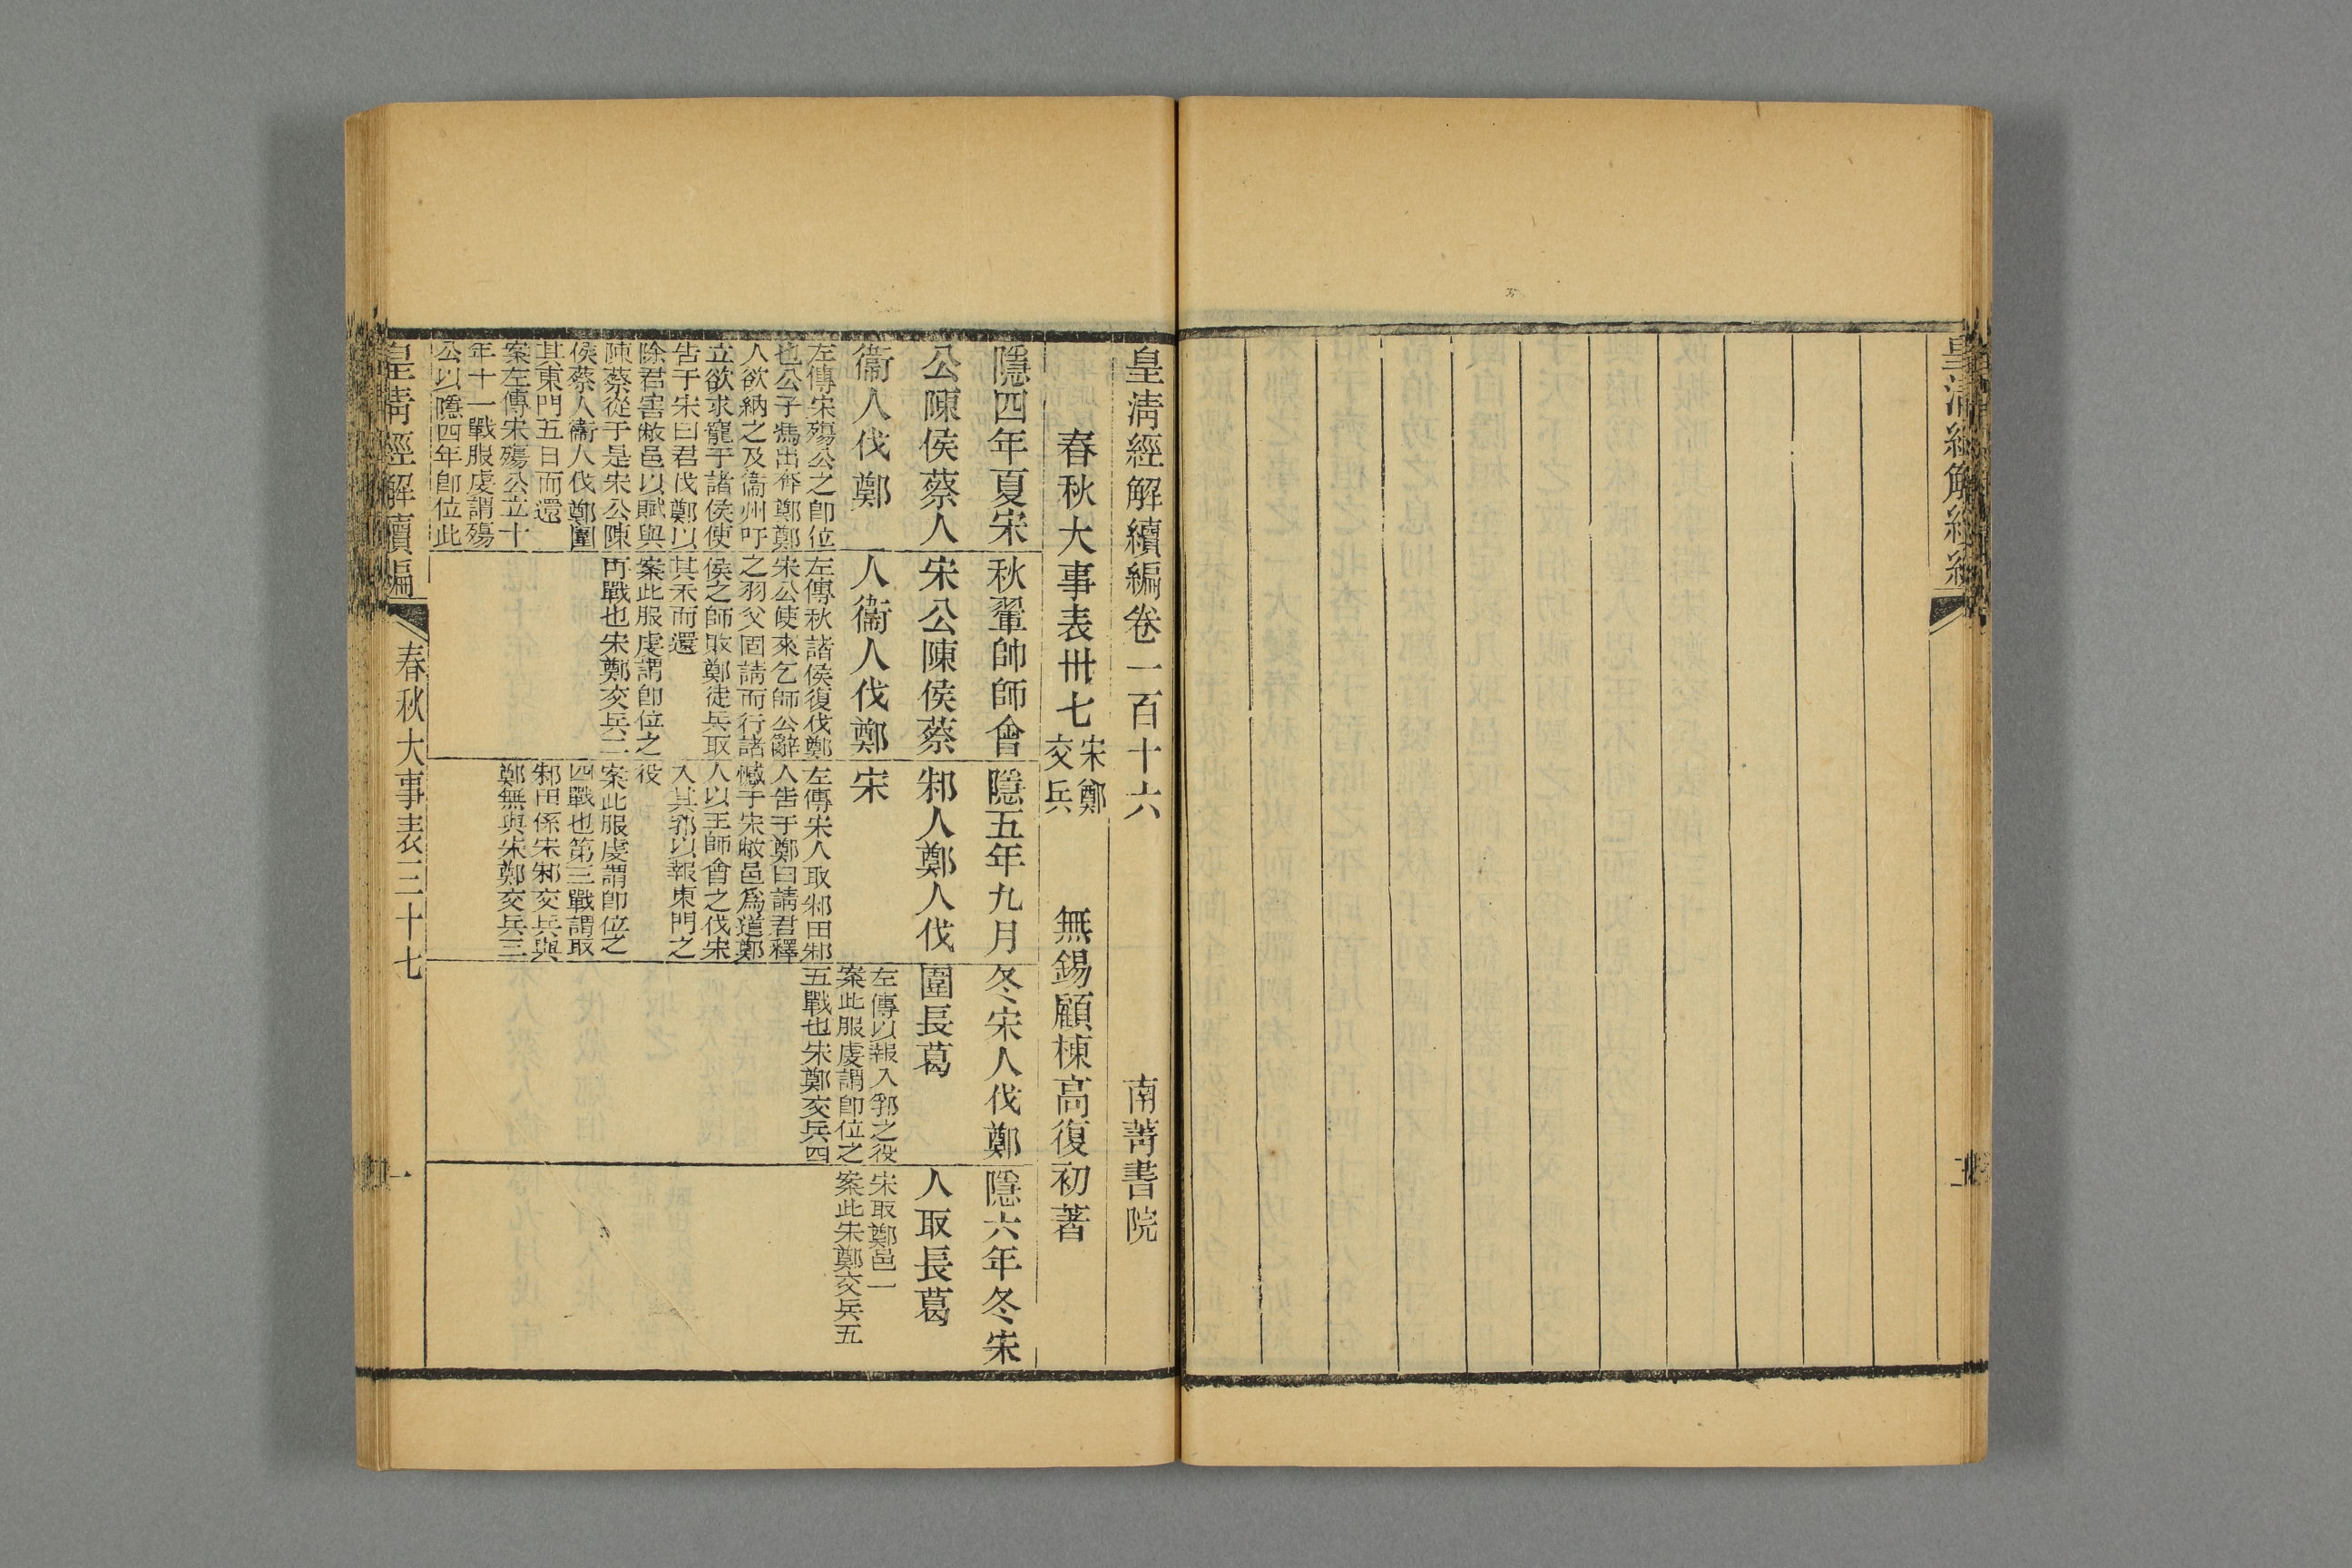 皇清經解
皇清經解續編卷一百十六
南菁書院
春秋大事表卅七
宋鄭
交兵
無錫顧棟高復初著
隱四年夏宋
公陳侯蔡人
衞人伐鄭
左傳宋殤公之卽位
也公子馮出奔鄭鄭
人欲納之及衞州吁
立欲求寵于諸侯使
告于宋曰君伐鄭以
除君害敝邑以賦與
陳蔡從于是宋公陳
侯蔡人衞人伐鄭圍
其東門五日而還
案左傳宋殤公立十
年十一戰服虔謂殤
公以隱四年卽位此
秋翬帥師會
宋公陳侯蔡
人衞人伐鄭
左傳秋諸侯復伐鄭
宋公使來乞師公辭
之羽父固請而行諸
侯之師敗鄭徒兵取
其禾而還
案此服虔謂卽位之
再戰也宋鄭交兵二
隱五年九月
邾人鄭人伐
宋
左傳宋人取邾田邾
人告于鄭曰請君釋
憾于宋敝邑爲道鄭
人以王師會之伐宋
入其郛以報東門之
役
案此服虔謂卽位之
四戰也第三戰謂取
邾田係宋邾交兵與
鄭無與宋鄭交兵三
冬宋人伐鄭
圍長葛
左傳以報入郛之役
案此服虔謂卽位之
五戰也宋鄭交兵四
隱六年冬宋
人取長葛
宋取鄭邑一
案此宋鄭交兵五
皇清經解續編
春秋大事表三十七
一